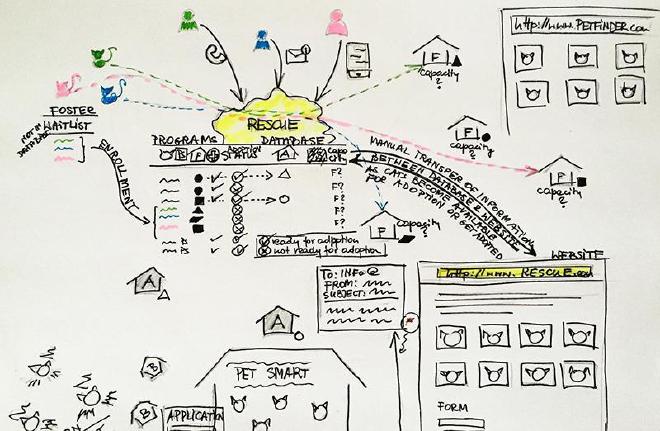 http://www.PETFINDER.com
F
capacity
?
RESCUE
FOSTER
WAITLIST
NOT IN
DATABASE
ENROLLMENT
PROGRAMS DATABASE
B F STATUS A
F?
F?
F?
F?
F?
ready for adoption
not ready for adoption
F
capacity
?
F
capacity
?
F
capacity
?
MANUAL TRANSFER OF INFORMATION
BETWEEN DATABASE & WEBSITE
AS CATS BECOME AVAILABLE
FOR ADOPTION OR GET ADOPTED
WEBSITE
http://www.RESCUE.com
FORM
TO: INFO@
FROM:
SUBJECT:
A
A
PET SMART
B
B
APPLICATION